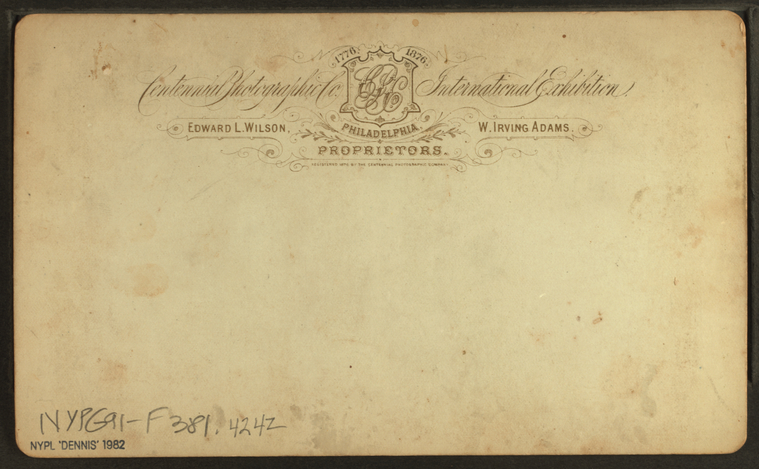 1776 1876
Centennial Photographic Co. International Exhibition.
EDWARD L. WILSON, PHILADELPHIA W. IRVING ADAMS.
PROPRIETORS.
REGISTERED 1876 BY THE CENTENNIAL PHOTOGRAPHIC COMPANY
NYPG91-F381.424Z
NYPL 'DENNIS' 1982